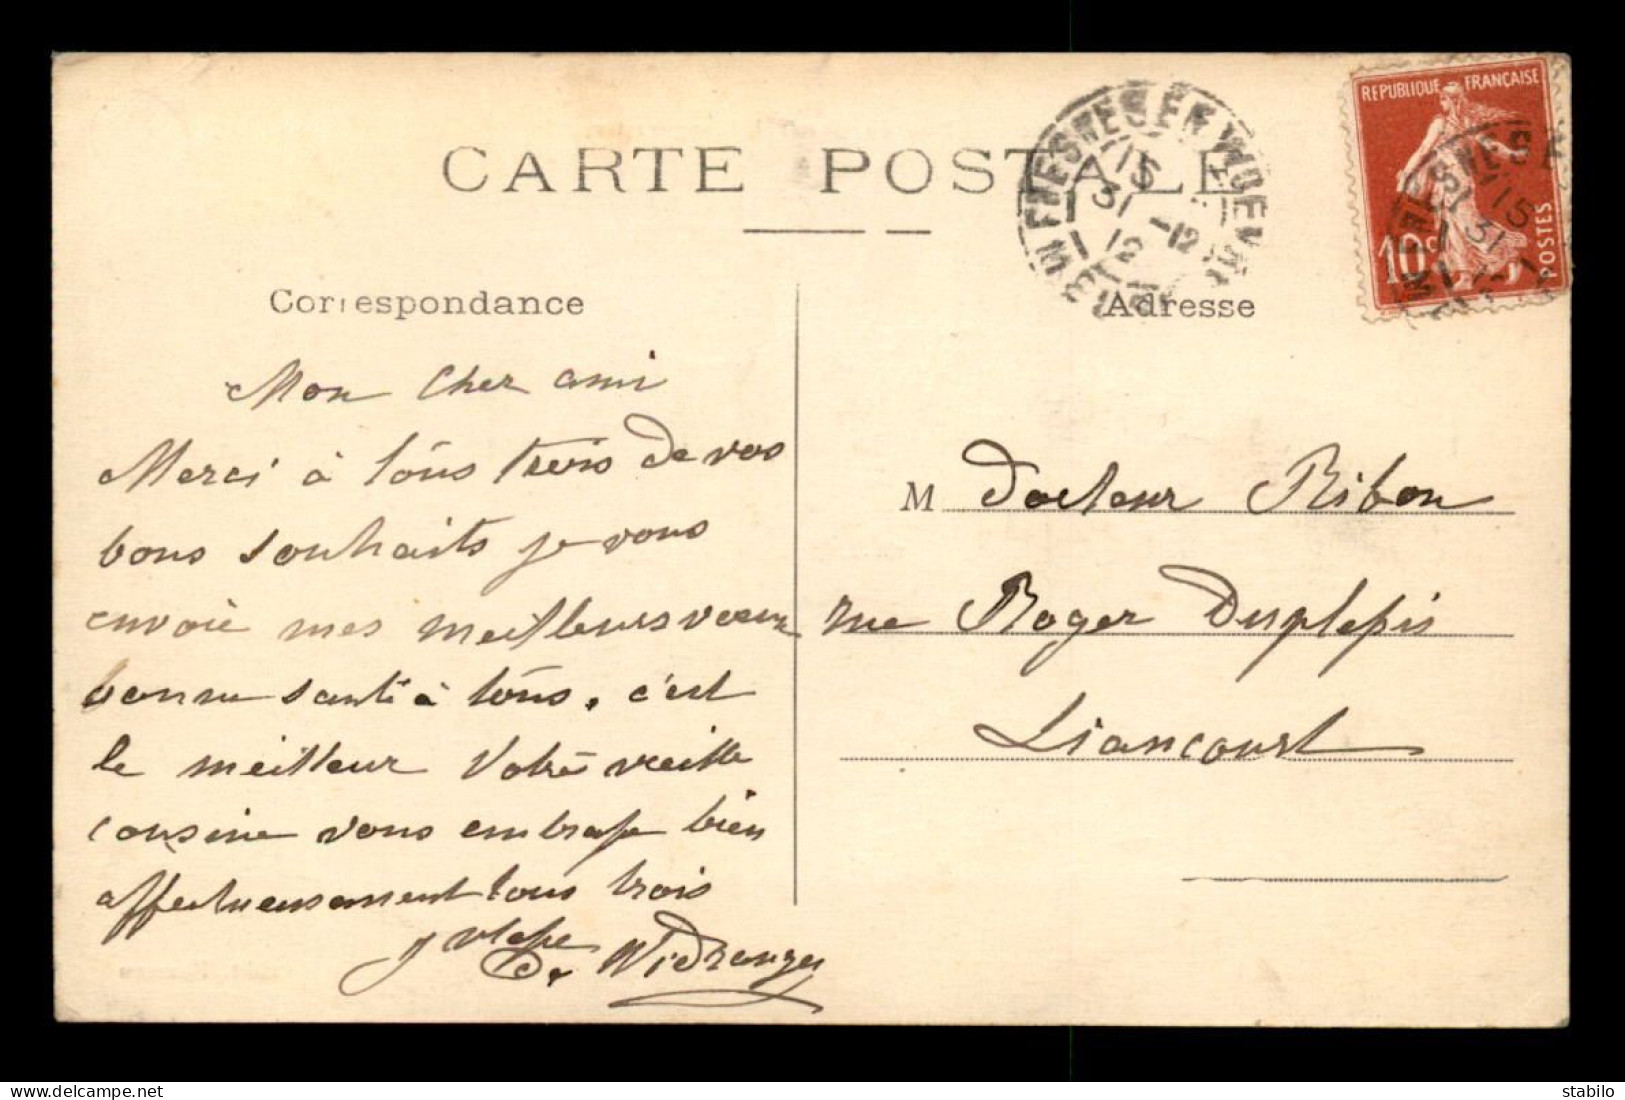 CARTE POSTALE
Correspondance
Adresse
REPUBLIQUE FRANÇAISE
10c
POSTES
FRESNES EN WOEVRE
15
31 -12
12
Mon Cher ami
Merci à tous trois de vos
bons souhaits je vous
envoie mes meilleurs vœux
bonne santé à tous. c'est
le meilleur Votre vieille
cousine vous embrasse bien
affectueusement tous trois
de Widranges
M Docteur Ribon
rue Roger Duplessis
Liancourt
stabilo